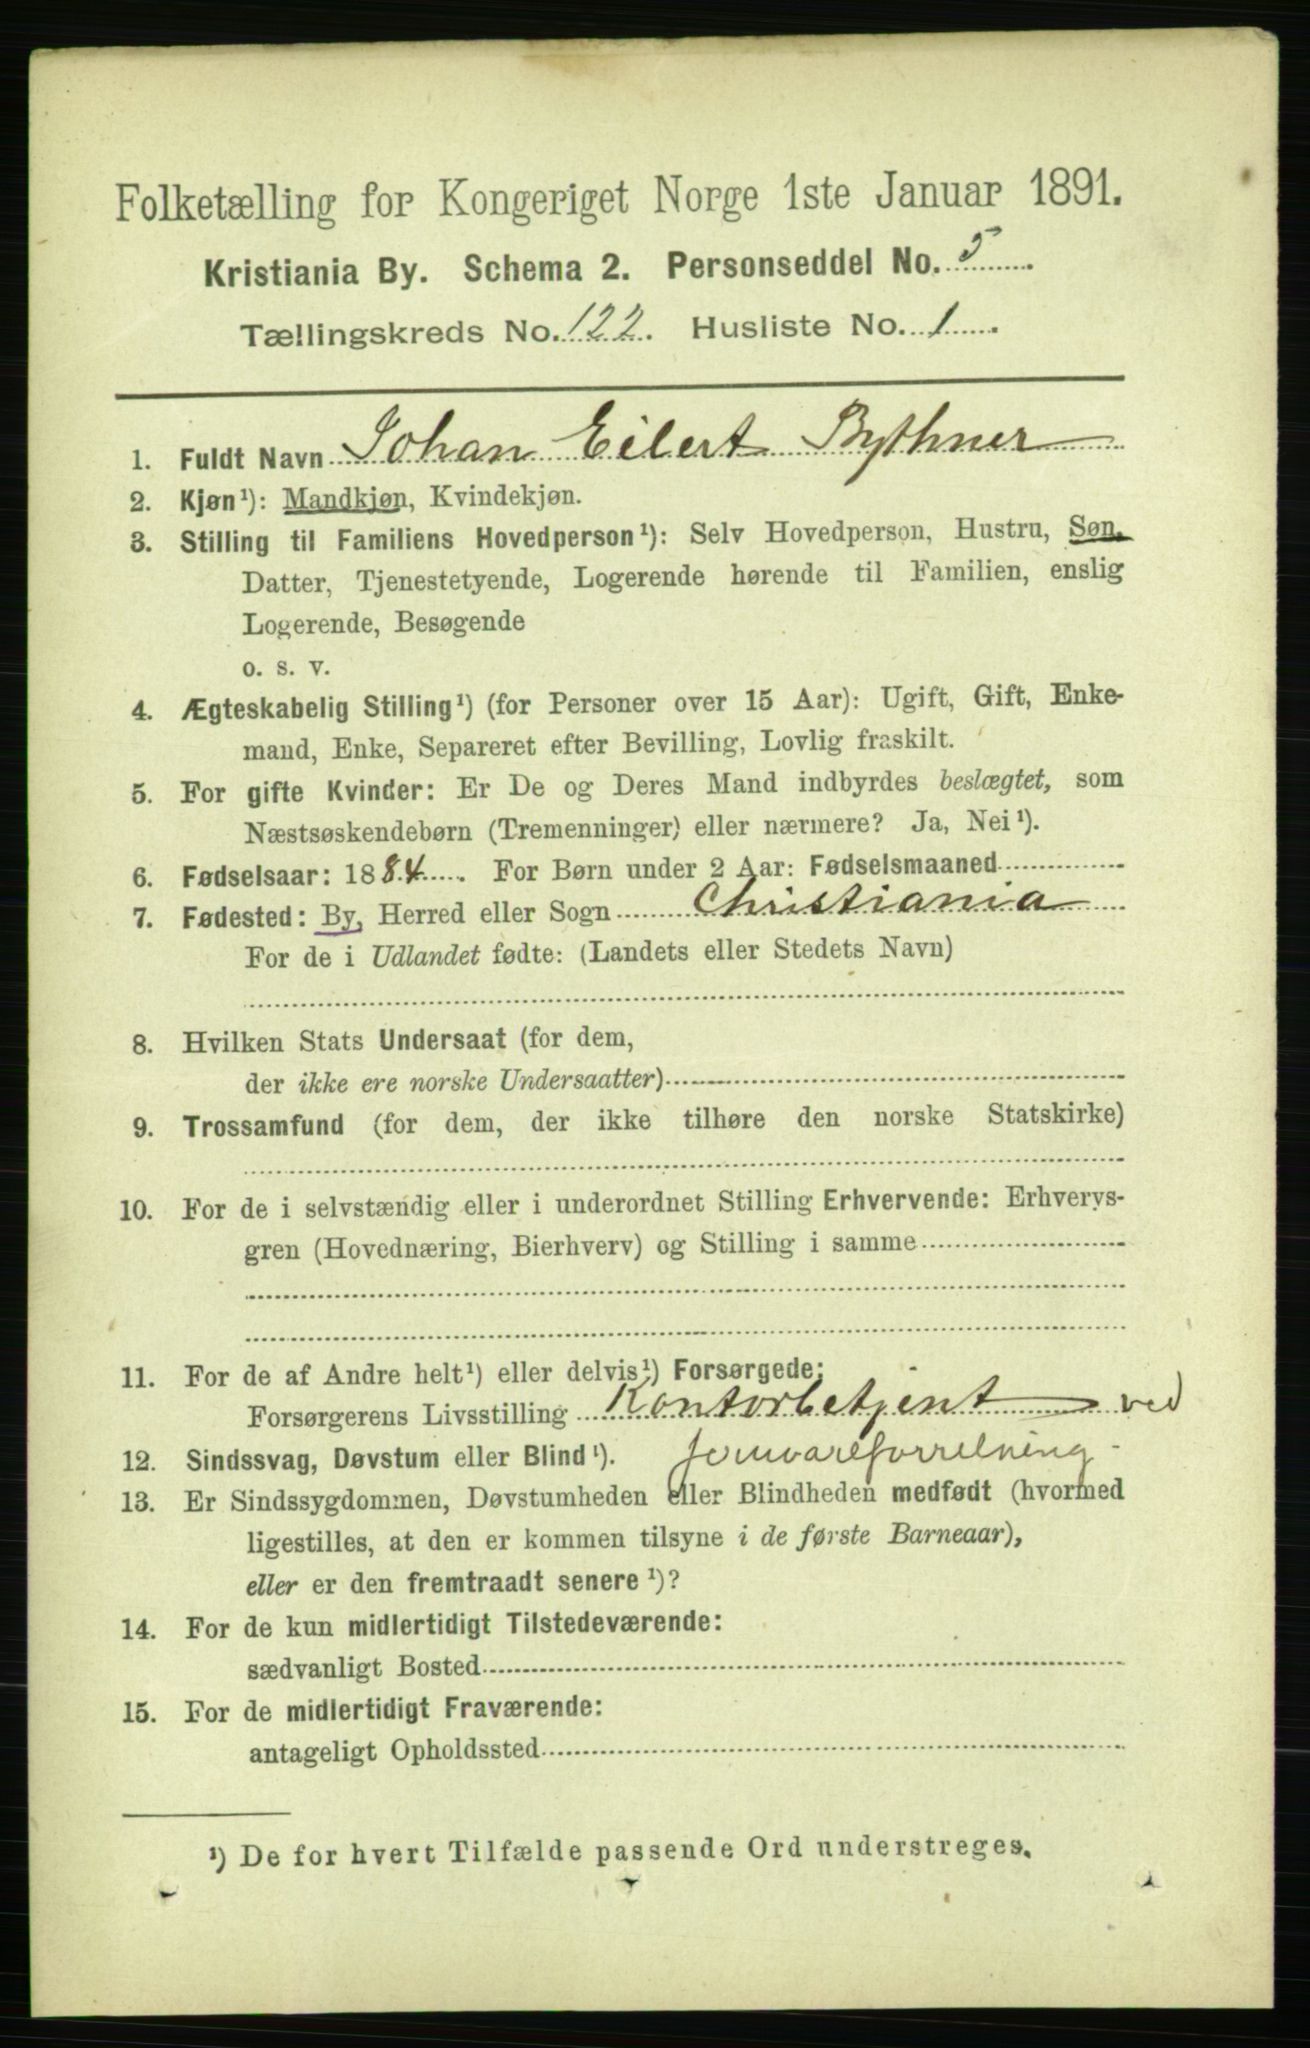 Folketælling for Kongeriget Norge 1ste Januar 1891.
Kristiania By. Schema 2. Personseddel No. 5.
Tællingskreds No. 122. Husliste No. 1.
1. Fuldt Navn Johan Eilert Bythner
2. Kjøn¹): Mandkjøn, Kvindekjøn.
3. Stilling til Familiens Hovedperson¹): Selv Hovedperson, Hustru, Søn,
Datter, Tjenestetyende, Logerende hørende til Familien, enslig
Logerende, Besøgende
o. s. v.
4. Ægteskabelig Stilling¹) (for Personer over 15 Aar): Ugift, Gift, Enke-
mand, Enke, Separeret efter Bevilling, Lovlig fraskilt.
5. For gifte Kvinder: Er De og Deres Mand indbyrdes beslægtet, som
Næstsøskendebørn (Tremenninger) eller nærmere? Ja, Nei¹).
6. Fødselsaar: 1884. For Børn under 2 Aar: Fødselsmaaned
7. Fødested: By, Herred eller Sogn Christiania
For de i Udlandet fødte: (Landets eller Stedets Navn)
8. Hvilken Stats Undersaat (for dem,
der ikke ere norske Undersaatter)
9. Trossamfund (for dem, der ikke tilhøre den norske Statskirke)
10. For de i selvstændig eller i underordnet Stilling Erhvervende: Erhvervs-
gren (Hovednæring, Bierhverv) og Stilling i samme
11. For de af Andre helt¹) eller delvis¹) Forsørgede:
Forsørgerens Livsstilling Kontorbetjent ved
jernvareforretning
12. Sindssvag, Døvstum eller Blind¹).
13. Er Sindssygdommen, Døvstumheden eller Blindheden medfødt (hvormed
ligestilles, at den er kommen tilsyne i de første Barneaar),
eller er den fremtraadt senere¹)?
14. For de kun midlertidigt Tilstedeværende:
sædvanligt Bosted
15. For de midlertidigt Fraværende:
antageligt Opholdssted
¹) De for hvert Tilfælde passende Ord understreges.